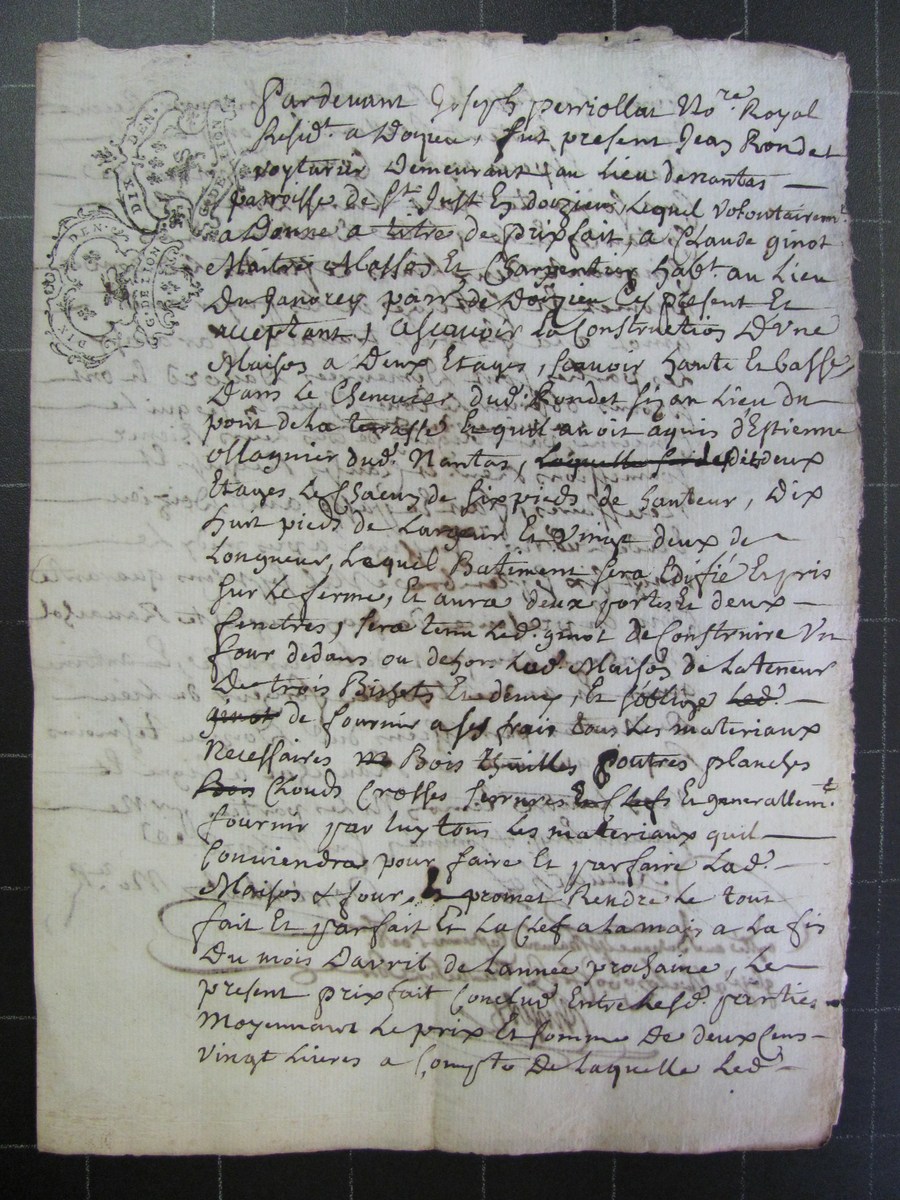 DIX DEN.
G. DE LION
DIX DEN.
G. DE LION
Pardevant Joseph perriollat No.re Royal
Resid.t a Doizieu, fut present Jean Rondet
voyturier Demeurant au Lieu denantas
parroisse de S.t Just En doizieu, lequel volontairem.t
a Donné a titre de prixfait, a Claude ginot
Maitre Masson Et Charpentier habt au Lieu
Du parr.e de Doizieu Cy present Et
acceptant, ascavoir la Construction D'Vne
Maison a Deux Etages, scavoir haute Et basse,
Dans le Chenevier dud. Rondet sizan Lieu du
pont de La terrasse Lequel avoit aquis d'Estienne
ollagnier dud. Nantas, desdits deux
Etages Le Chacun de six pieds de hauteur, Dix
huit pieds de Largeur Et Vingt deux de
Longueur, Lequel Batiment sera Edifié Et pris
sur Le ferme, Et aura deux portes Et deux
fenetres, sera tenu Led. ginot de Construire Vn
four dedans ou dehor Lad. Maison de La teneur
De trois Bichets Et demy, Et s'oblige Led.
ginot de fournir a ses frais tous Les materiaux
Necessaires Bois thuilles poutres planches
Bois Clouds Crosses serrures Et Clefs Et generallem.t
fournir par luy tous Les materiaux quil
Conviendra pour faire Et parfaire Lad.
Maison & four, Et promet Rendre Le tout
fait Et parfait Et La Clef a la main a La fin
Du mois Davril de Lannée prochaine, Le
present prixfait Conclud Entre Lesd. parties
Moyennant Le prix Et somme De deux Cens
vingt Livres a Compte De Laquelle Led.